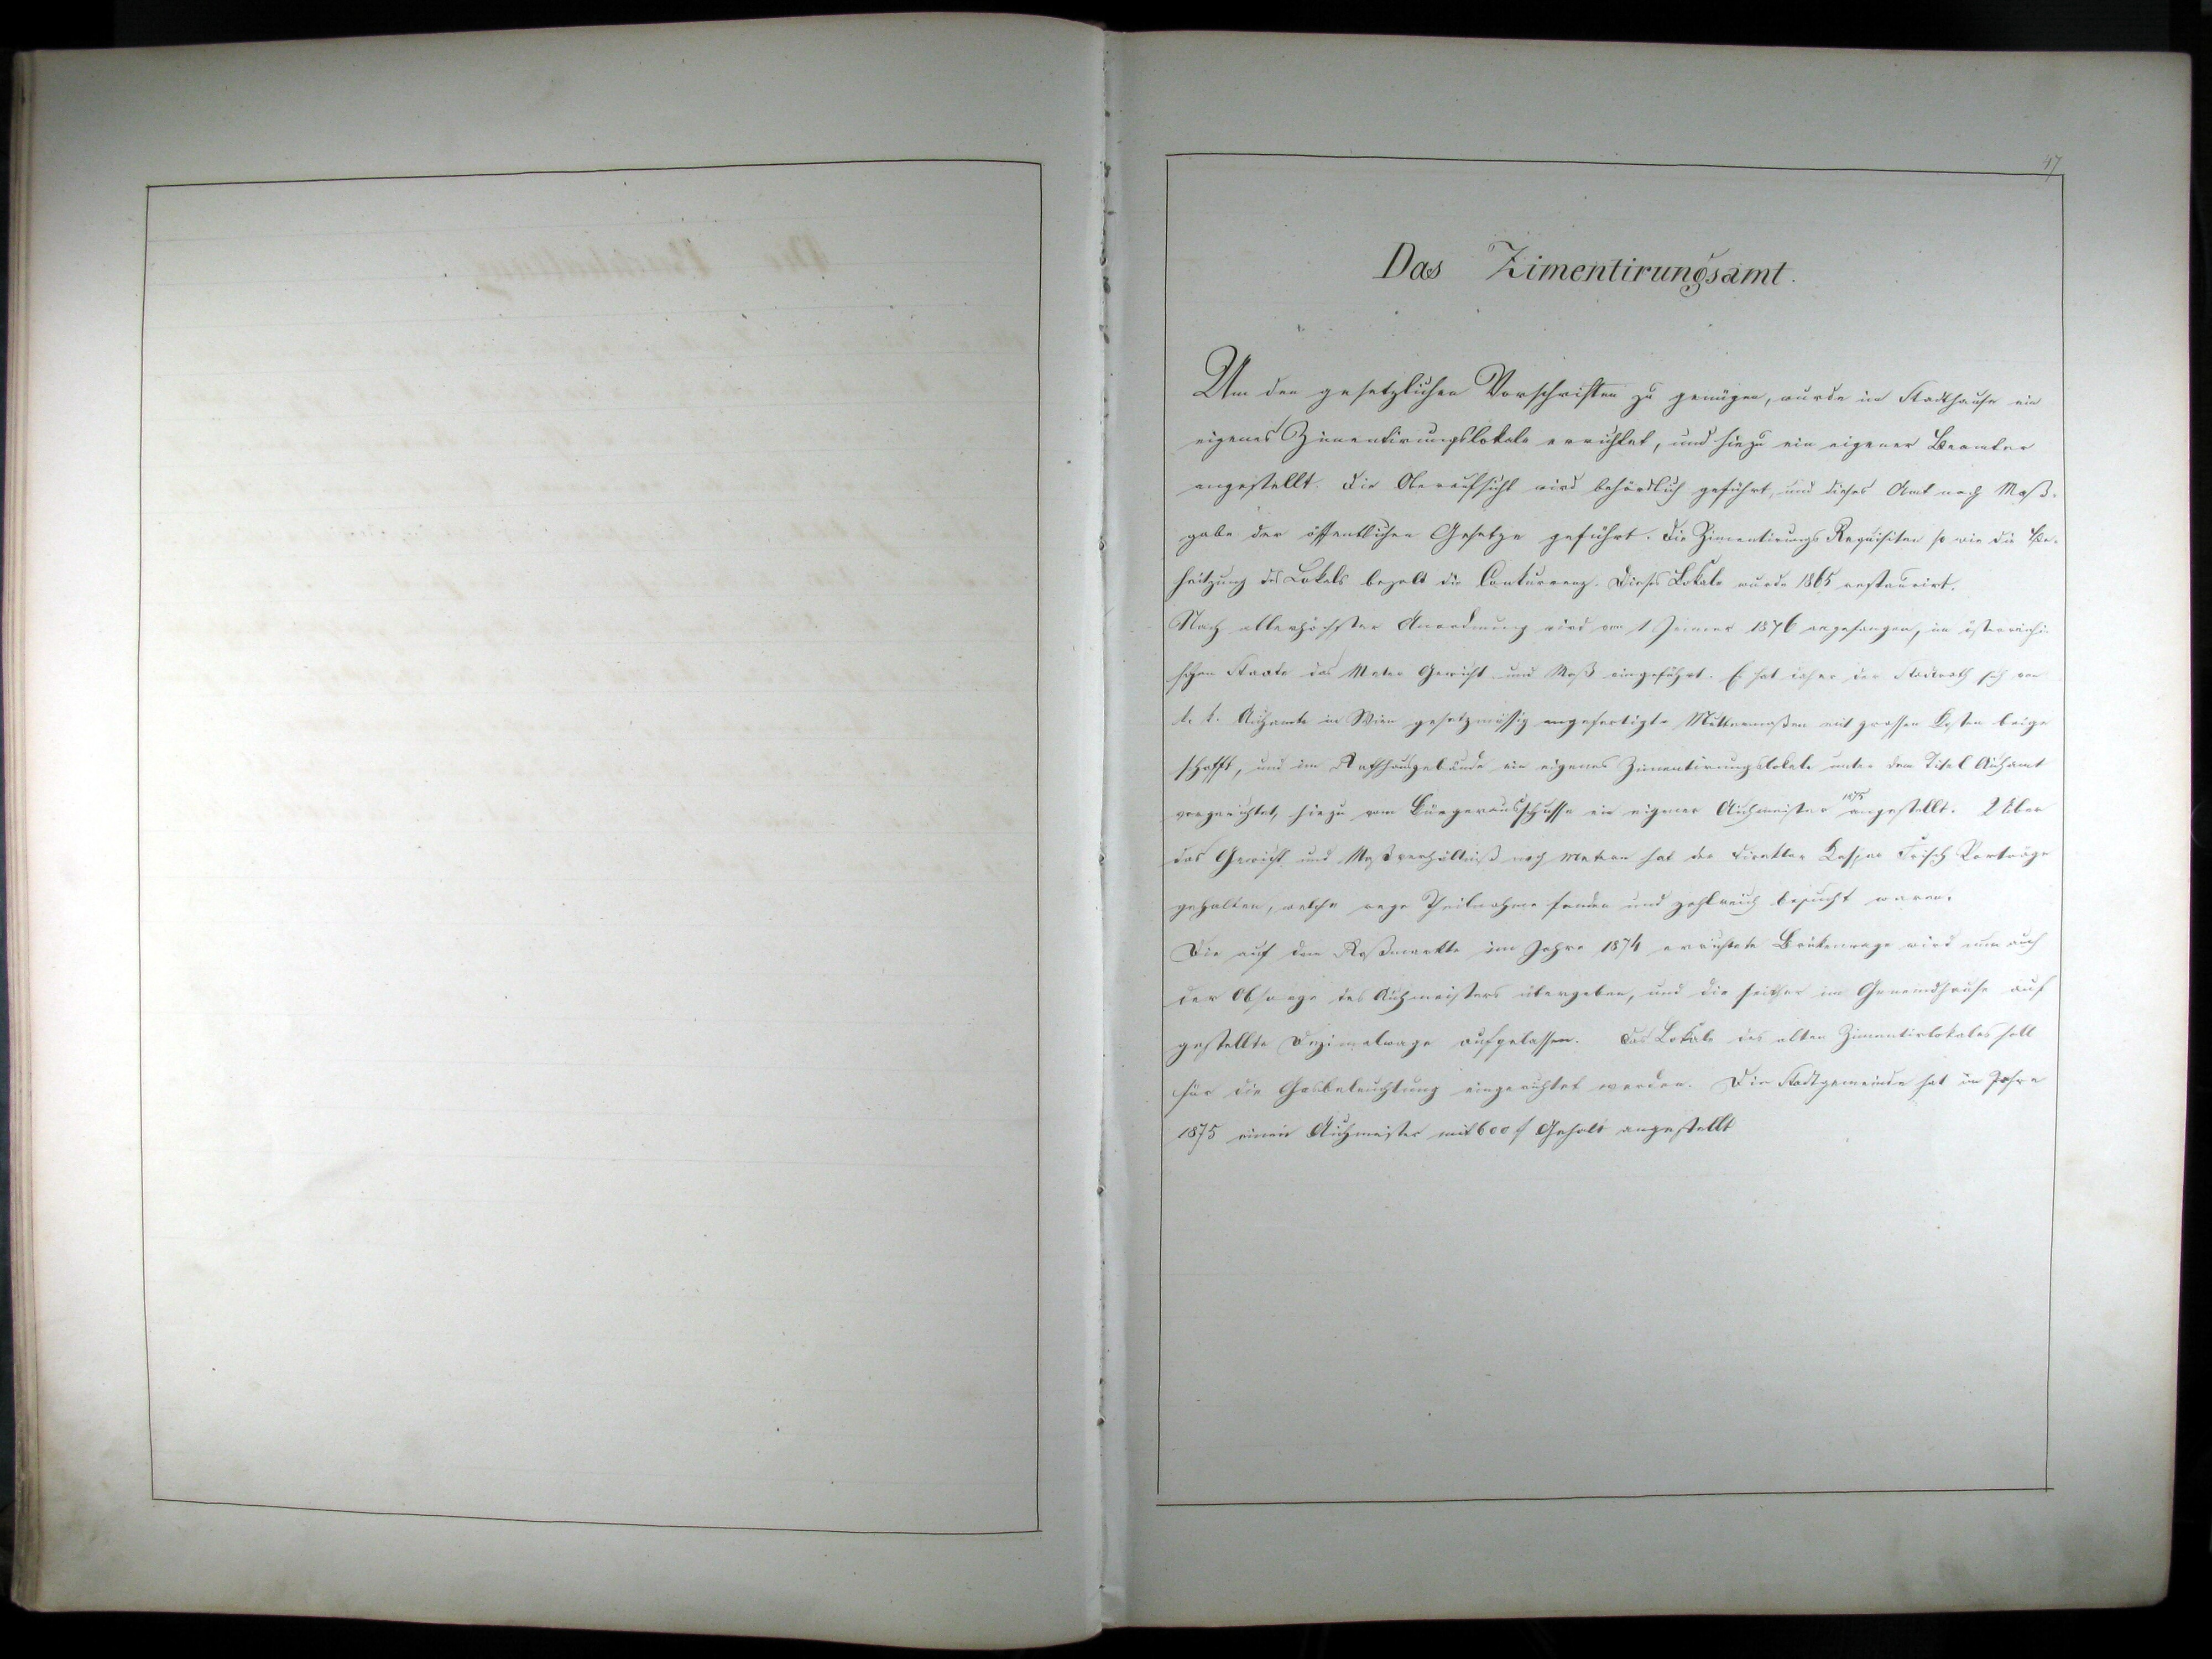 47
Das Zimentirungsamt.
Um den gesetzlichen Vorschriften zu genügen, wurde im Stadthause ein
eigenes Zimentirungslokale errichtet, und hiezu ein eigener Beamter
angestellt. Die Oberaufsicht wird behördlich geführt, und dieses Amt nach Maß-
gabe der öffentlichen Gesetze geführt. Die Zimentirungs Requisiten so wie die Be-
heitzung des Lokals bezalt die Conkurrenz. Dieses Lokale wurde 1865 restaurirt.
Nach allerhöchster Anordnung wird vom 1 Jänner 1876 angefangen, im österreichi-
schen Staate das Meter Gewicht und Maß eingeführt. Es hat daher der Stadtrath sich vom
k. k. Aichamte in Wien gesetzmässig angefertigte mit grossen Kosten beige
schafft, und im Rathhausgebäude ein eigenes Zimentirungslokale unter dem Titel Aichamt
vorgerichtet, hiezu vom Bürgerausschusse ein eigener Aichmeister 1875 angestellt. Über
das Gewicht und Maßverhältniß nach Metern hat der Direktor Kaspar Vorträge
gehalten, welche rege Theilnahme fanden und zahlreich besucht waren.
Die auf dem Roßmarkte im Jahre 1874 errichtete Brükenwage wird nun auch
der Obsorge des Aichmeisters übergeben, und die seither im Gemeindhause auf
gestellte Dezimalwage aufgelassen. Das Lokale des alten Zimentirlokales soll
für die Gasbeleuchtung eingerichtet werden. Die Stadtgemeinde hat im Jahre
1875 einen Aichmeister mit 600 f Gehalt angestellt